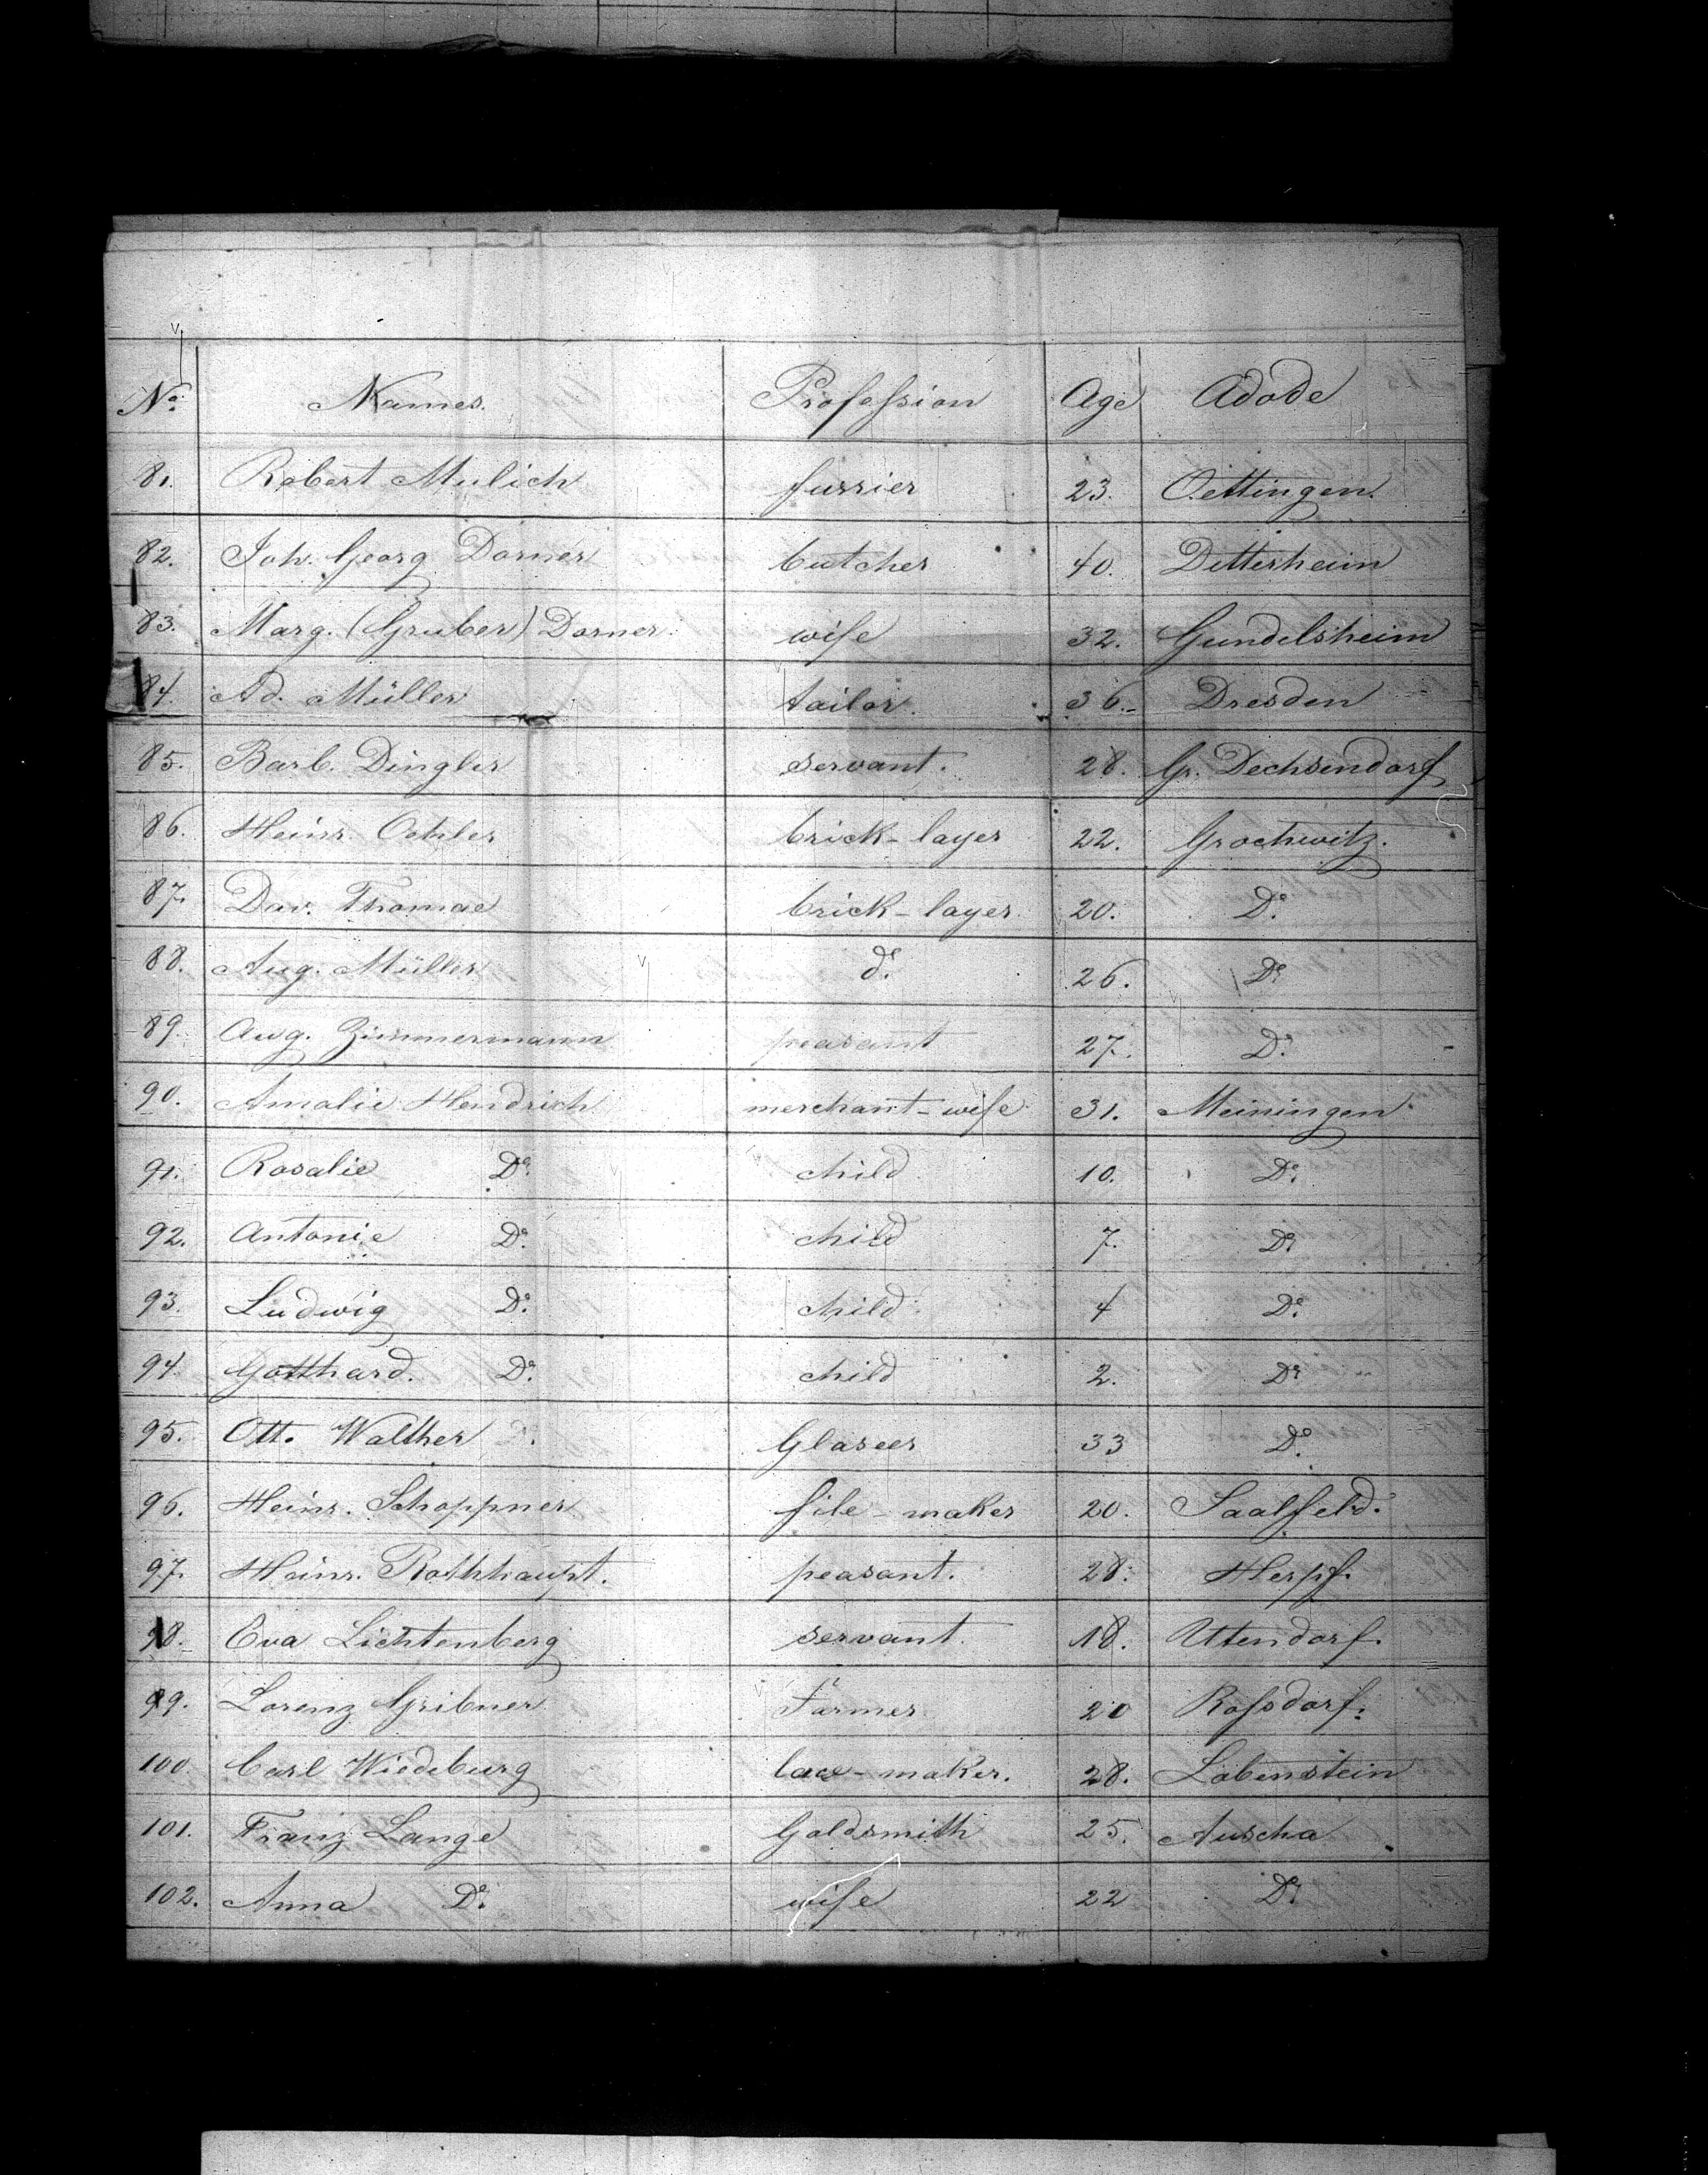 No. Names. Profession Age Adode
81. Robert Mulich furrier 23. Oettingen.
82. Joh. Georg Dorner butcher 40. Detterheim
83. Marg. (Gruber) Dorner. wife 32. Gundelsheim
84. Ad. Müller tailor. 36. Dresden
85. Barb. Dingler servant. 28. Gr. Dechsendorf
86. Heinr. Oehler brick-layer 22. Grochwitz.
87. Dav. Thomae brick-layer 20. Do.
88. Aug. Müller do. 26. Do.
89. Aug. Zimmermann peasant 27. Do.
90. Amalie Hendrich merchant-wife 31. Meiningen.
91. Rosalie Do. child 10. Do.
92. Antonie Do. child 7. Do.
93. Ludwig Do. child 4 Do.
94. Gotthard. Do. child 2. Do.
95. Otto Walther Glaseer 33 Do.
96. Heinr. Schoppner file-maker 20. Saalfeld.
97. Heinr. Rothhaupt. peasant. 28. Herpf.
98. Eva Lichtenberg servant. 18. Utendorf.
99. Lorenz Gribner Farmer 20 Rossdorf.
100. Carl Wiedeburg lace-maker. 28. Lobenstein
101. Franz Lange Goldsmith 25. Auscha
102. Anna Do. wife 22 Do.